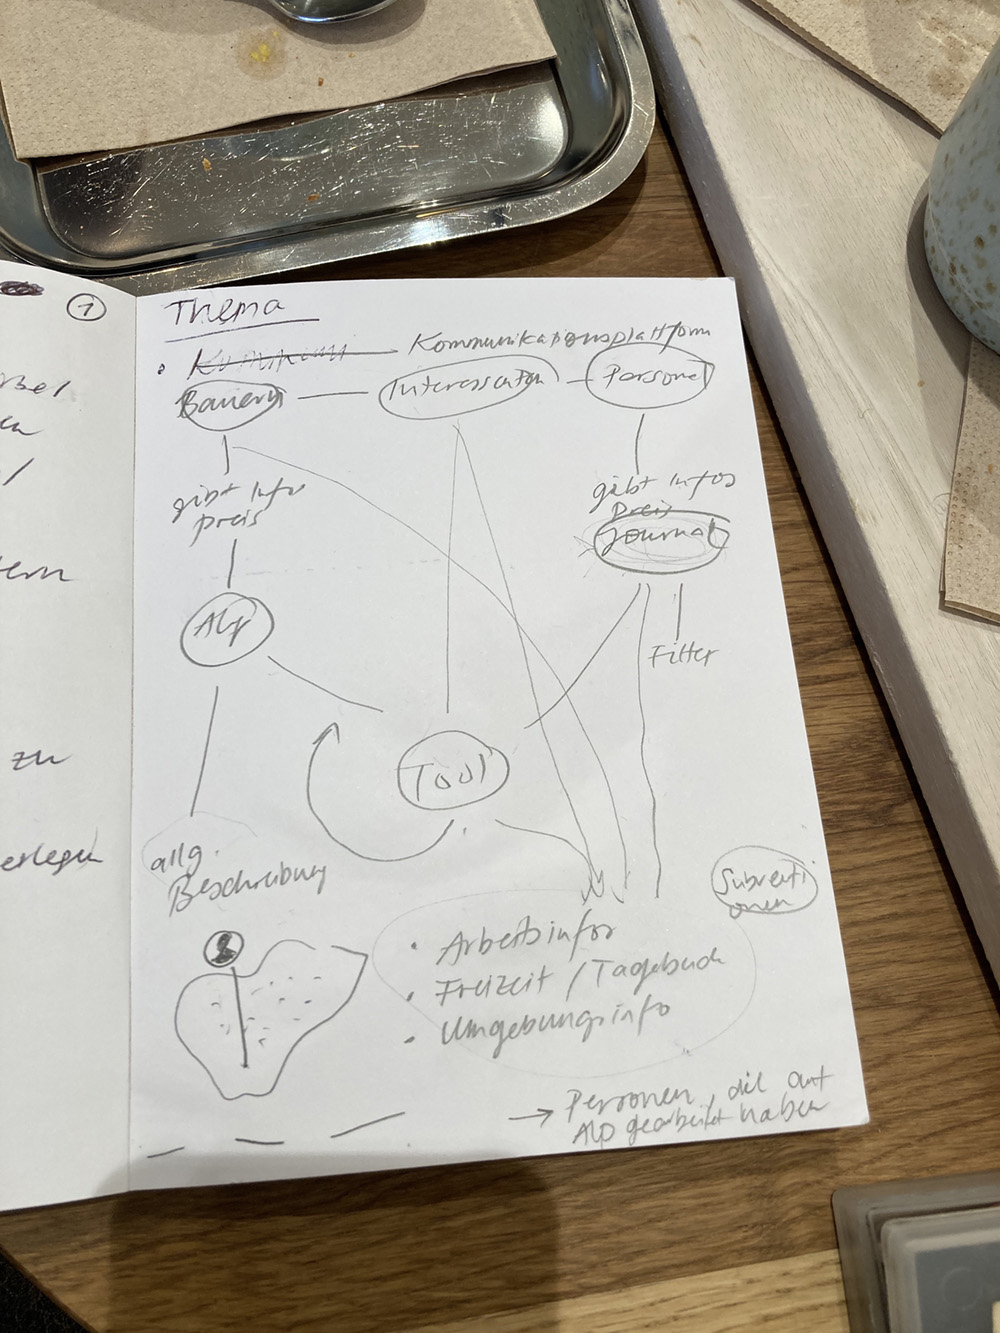 1
rbel
en
/
ern
zu
erlegen
Thema
Kommunikationsplattform
Bauern
Interessenten
Personel
gibt Infos
preis
gibt Infos
Preis
Journal
Alp
Filter
Tool
allg.
Beschreibung
Subventi
onen
• Arbeitsinfos
• Freizeit / Tagebuch
• Umgebungsinfo
→ Personen, die auf
Alp gearbeitet haben